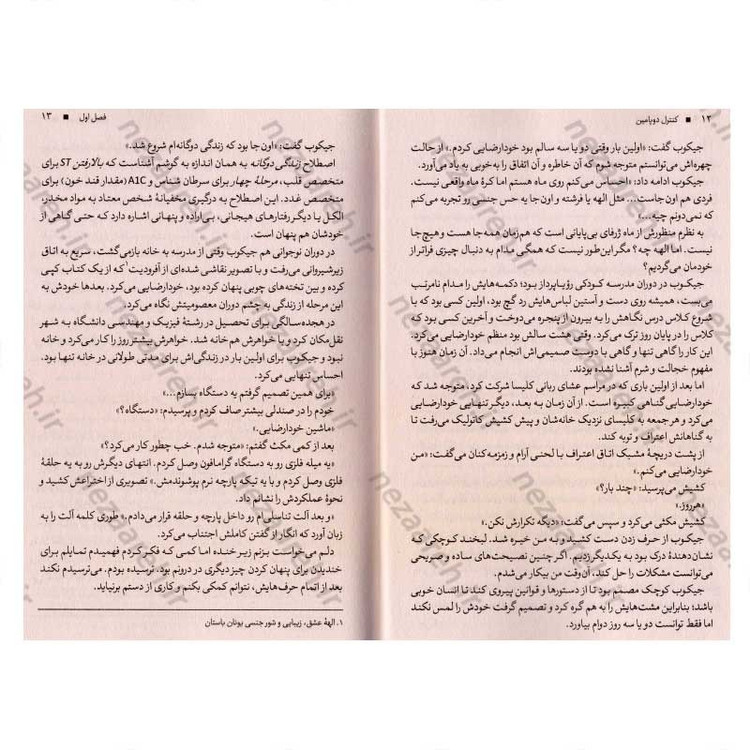 ۱۲ ■ کنترل دوپامین
جیکوب گفت: «اولین بار وقتی دو یا سه سالم بود خودارضایی کردم.» از حالت
چهره‌اش می‌توانستم متوجه شوم که آن خاطره و آن اتفاق را به‌خوبی به یاد می‌آورد.
جیکوب ادامه داد: «احساس می‌کنم روی ماه هستم اما کرهٔ ماه واقعی نیست.
فردی هم اون‌جاست... مثل الهه یا فرشته و اون‌جا یه حس جنسی رو تجربه می‌کنم
که نمی‌دونم چیه...»
به نظرم منظورش از ماه ژرفای بی‌پایانی است که هم‌زمان همه‌جا هست و هیچ‌جا
نیست. اما الهه چه؟ مگر این‌طور نیست که همگی مدام به دنبال چیزی فراتر از
خودمان می‌گردیم؟
جیکوب در دوران مدرسه کودکی رؤیاپرداز بود؛ دکمه‌هایش را مدام نامرتب
می‌بست، همیشه روی دست و آستین لباس‌هایش رد گچ بود، اولین کسی بود که با
شروع کلاس درس نگاهش را به بیرون از پنجره می‌دوخت و آخرین کسی بود که
کلاس را در پایان روز ترک می‌کرد. وقتی هشت سالش بود منظم خودارضایی می‌کرد.
این کار را گاهی تنها و گاهی با دوست صمیمی‌اش انجام می‌داد. آن زمان هنوز با
مفهوم خجالت و شرم آشنا نشده بودند.
اما بعد از اولین باری که در مراسم عشای ربانی کلیسا شرکت کرد، متوجه شد که
خودارضایی گناهی کبیره است. از آن زمان به بعد، دیگر تنهایی خودارضایی
می‌کرد و هر جمعه به کلیسای نزدیک خانه‌شان و پیش کشیش کاتولیک می‌رفت تا
به گناهانش اعتراف و توبه کند.
از پشت دریچهٔ مشبک اتاق اعتراف با لحنی آرام و زمزمه‌کنان می‌گفت: «من
خودارضایی می‌کنم.»
کشیش می‌پرسید: «چند بار؟»
«هر روز.»
کشیش مکثی می‌کرد و سپس می‌گفت: «دیگه تکرارش نکن.»
جیکوب از حرف زدن دست کشید و به من خیره شد. لبخند کوچکی که
نشان‌دهندهٔ درک بود به یکدیگر زدیم. اگر چنین نصیحت‌های ساده و صریحی
می‌توانست مشکلات را حل کند، آن‌وقت من بیکار می‌شدم.
جیکوب کوچک مصمم بود تا از دستورها و قوانین پیروی کند تا انسان خوبی
باشد؛ بنابراین مشت‌هایش را به هم گره کرد و تصمیم گرفت خودش را لمس نکند
اما فقط توانست دو یا سه روز دوام بیاورد.
فصل اول ■ ۱۳
جیکوب گفت: «اون‌جا بود که زندگی دوگانه‌ام شروع شد.»
اصطلاح زندگی دوگانه به همان اندازه به گوشم آشناست که بالا رفتن ST برای
متخصص قلب، مرحلهٔ چهار برای سرطان شناس و A1C (مقدار قند خون) برای
متخصص غدد. این اصطلاح به درگیری مخفیانهٔ شخص معتاد به مواد مخدر،
الکل یا دیگر رفتارهای هیجانی، بی‌اراده و پنهانی اشاره دارد که حتی گاهی از
خودشان هم پنهان است.
در دوران نوجوانی هم جیکوب وقتی از مدرسه به خانه بازمی‌گشت، سریع به اتاق
زیرشیروانی می‌رفت و با تصویر نقاشی شده‌ای از آفرودیت¹ که از یک کتاب کپی
کرده و بین تخته‌های چوبی پنهان کرده بود، خودارضایی می‌کرد. بعدها خودش به
این مرحله از زندگی به چشم دوران معصومیتش نگاه می‌کرد.
در هجده‌سالگی برای تحصیل در رشتهٔ فیزیک و مهندسی دانشگاه به شهر
نقل‌مکان کرد و با خواهرش هم خانه شد. خواهرش بیشتر روز را کار می‌کرد و خانه
نبود و جیکوب برای اولین بار در زندگی‌اش برای مدتی طولانی در خانه تنها بود.
احساس تنهایی می‌کرد.
«برای همین تصمیم گرفتم یه دستگاه بسازم...»
خودم را در صندلی بیشتر صاف کردم و پرسیدم: «دستگاه؟»
«ماشین خودارضایی.»
بعد از کمی مکث گفتم: «متوجه شدم. خب چطور کار می‌کرد؟»
«یه میله فلزی رو به دستگاه گرامافون وصل کردم. انتهای دیگرش رو به یه حلقهٔ
فلزی وصل کردم و با یه تیکه پارچه نرم پوشوندمش.» تصویری از اختراعش کشید و
نحوهٔ عملکردش را نشانم داد.
«و بعد آلت تناسلی‌ام رو داخل پارچه و حلقه قرار می‌دادم.» طوری کلمه آلت را به
زبان آورد که انگار از گفتن کاملش اجتناب می‌کرد.
دلم می‌خواست بزنم زیر خنده اما کمی که فکر کردم فهمیدم تمایلم برای
خندیدن برای پنهان کردن چیز دیگری در درونم بود. ترسیده بودم. می‌ترسیدم نکند
بعد از اتمام حرف‌هایش، نتوانم کمکی بکنم و کاری از دستم برنیاید.
۱. الههٔ عشق، زیبایی و شور جنسی یونان باستان
nezaareh.ir